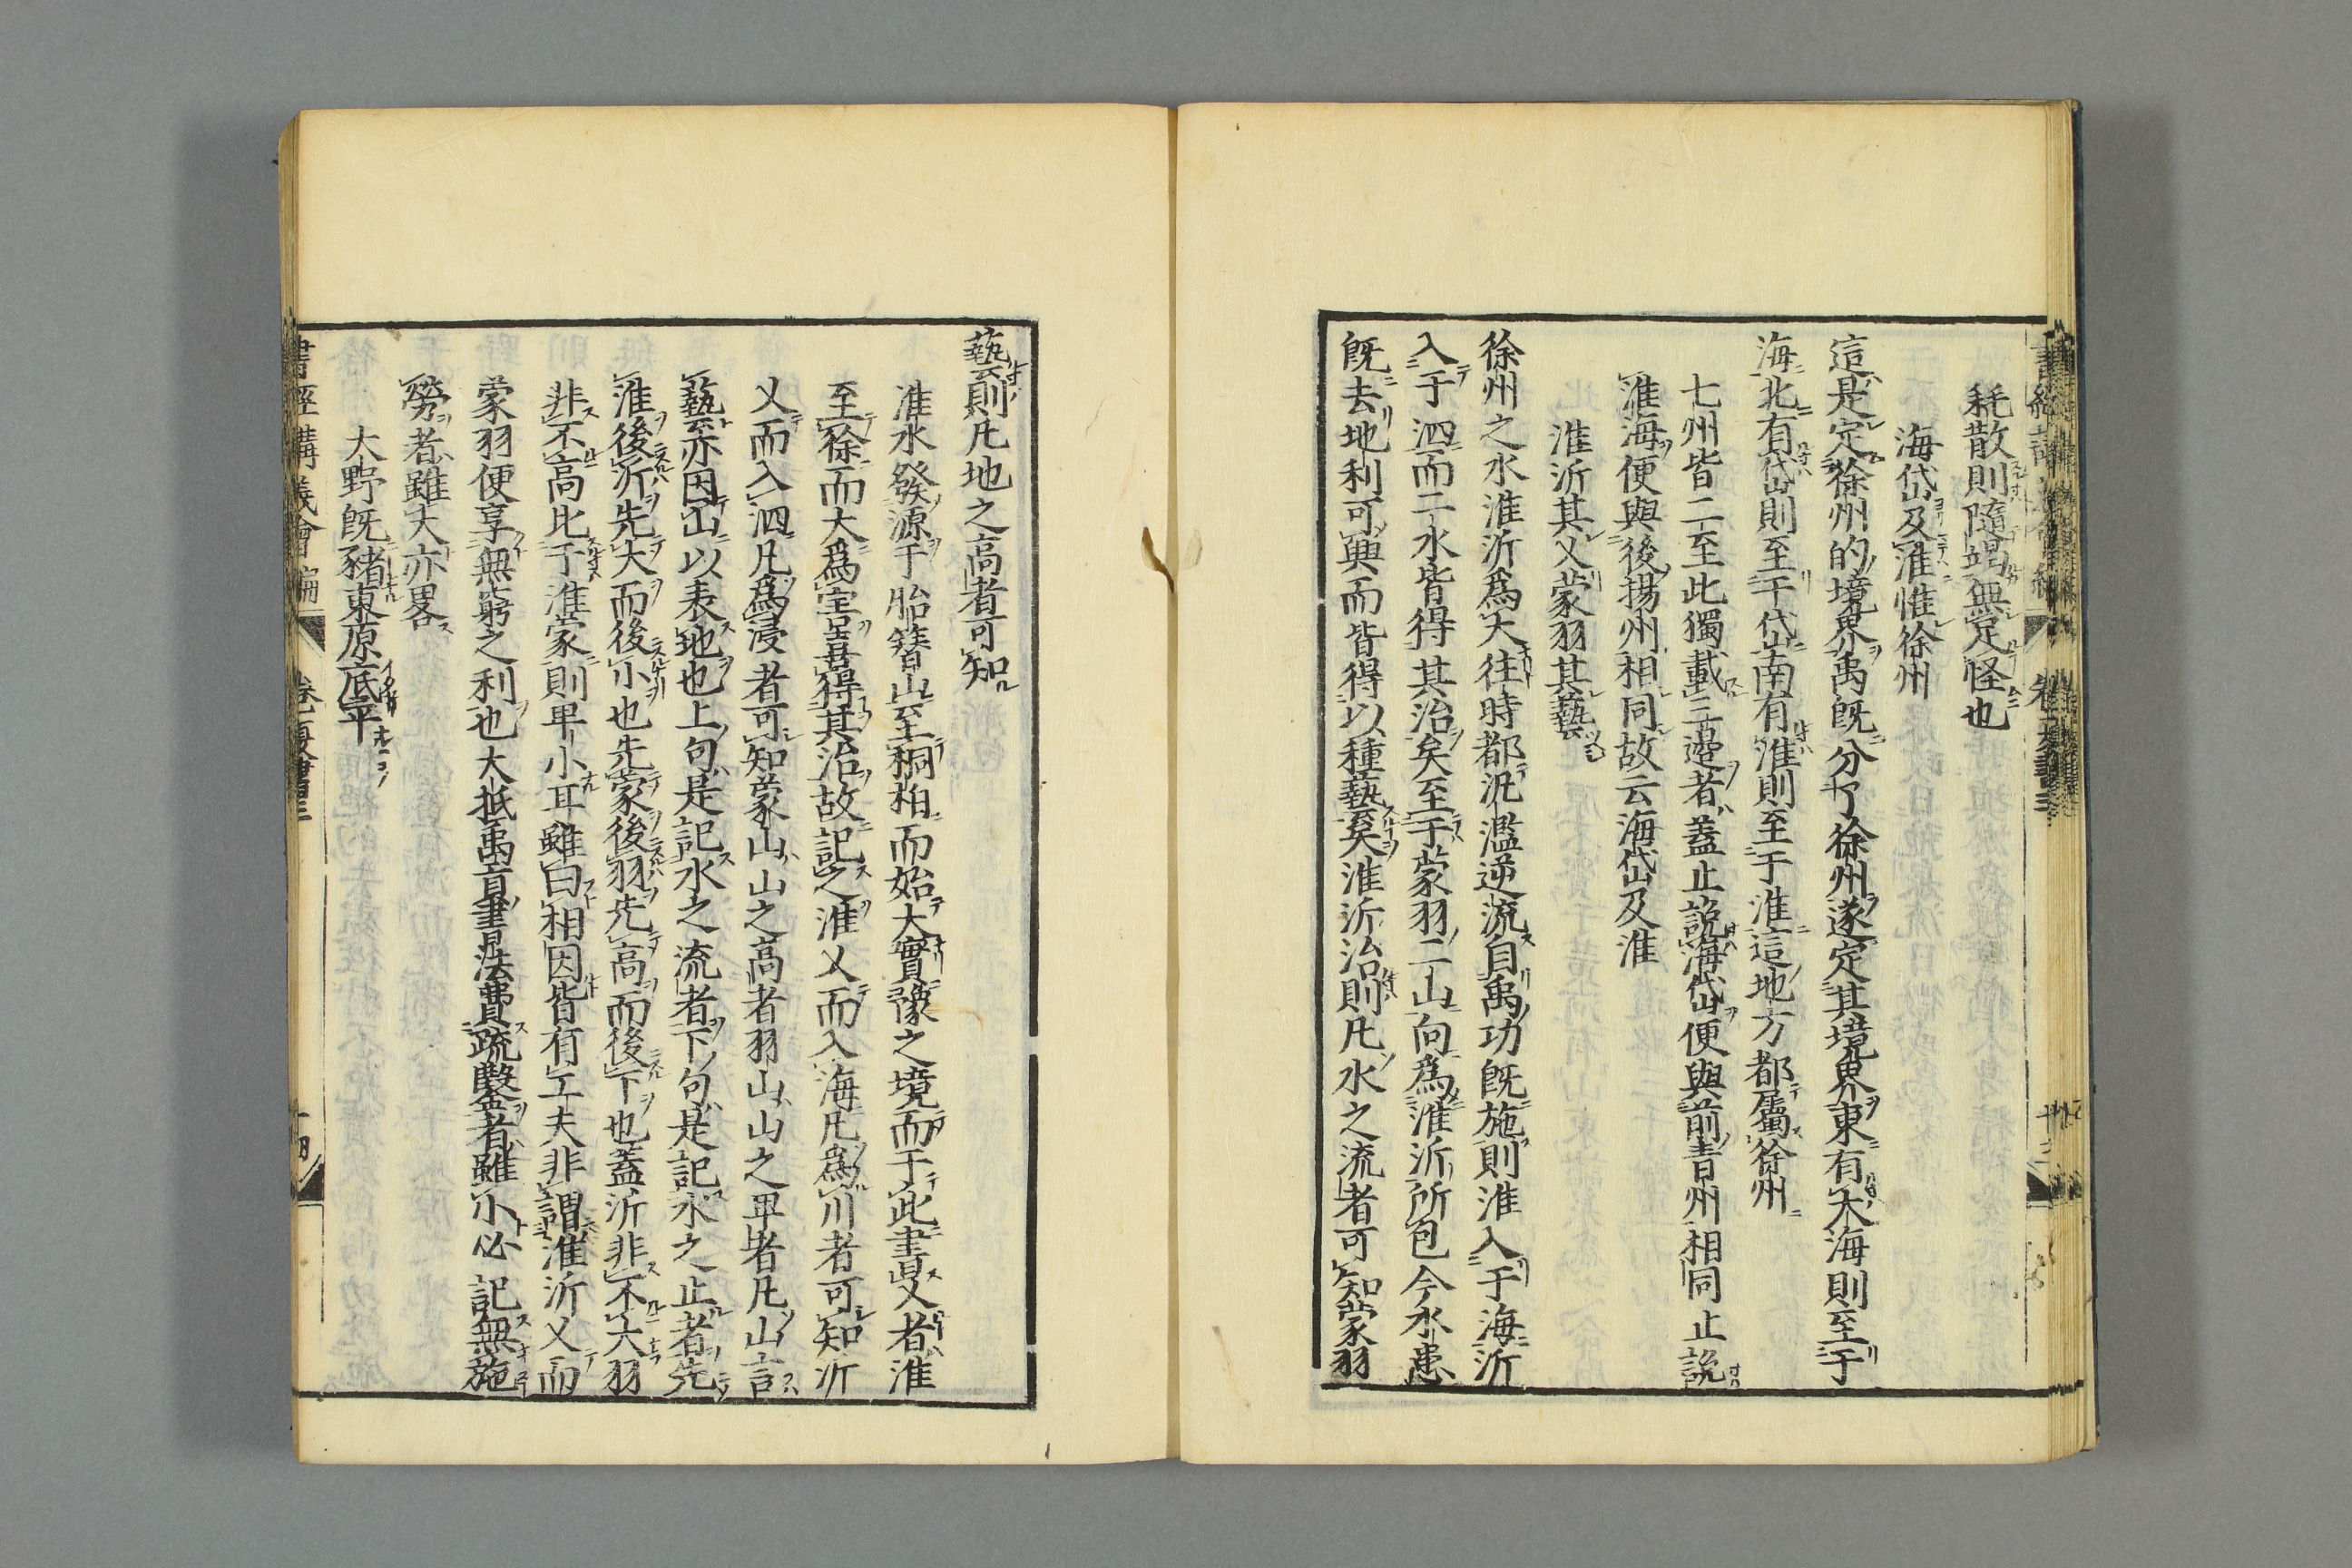 耗散則隨竭無足怪也
海岱及淮惟徐州
這是定徐州的境界禹既分了徐州遂定其境界東有大海則至于
海北有岱山則至于岱山南有淮則至于淮這地方都屬徐州
七州皆二至此獨載三邊者蓋止説海岱便與前青州相同止説
淮海便與後揚州相同故云海岱及淮
淮沂其乂蒙羽其藝
徐州之水淮沂爲大往時都汎濫逆流自禹功既施則淮入于海沂
入于泗而二水皆得其治矣至于蒙羽二山向爲淮沂所包今水患
既去地利可興而皆得以種藝矣淮沂治則凡水之流者可知蒙羽
藝則凡地之高者可知
淮水發源于胎簪山至桐柏而始大實豫之境而于此書乂者淮
至徐而大爲害尤甚得其治故記之淮乂而入海凡爲川者可知沂
乂而入泗凡爲浸者可知蒙山山之高者羽山山之卑者凡山言
藝亦因山以表地也上句是記水之流者下句是記水之止者先
淮後沂先大而後小也先蒙後羽先高而後下也蓋沂非不大羽
非不高比于淮蒙則卑小耳雖曰相因皆有工夫非謂淮沂乂而
蒙羽便享無窮之利也大抵禹貢書法費疏鑿者雖小必記無施
勞者雖大亦畧
大野既豬東原底平
書經講義會編 卷三夏書 十四